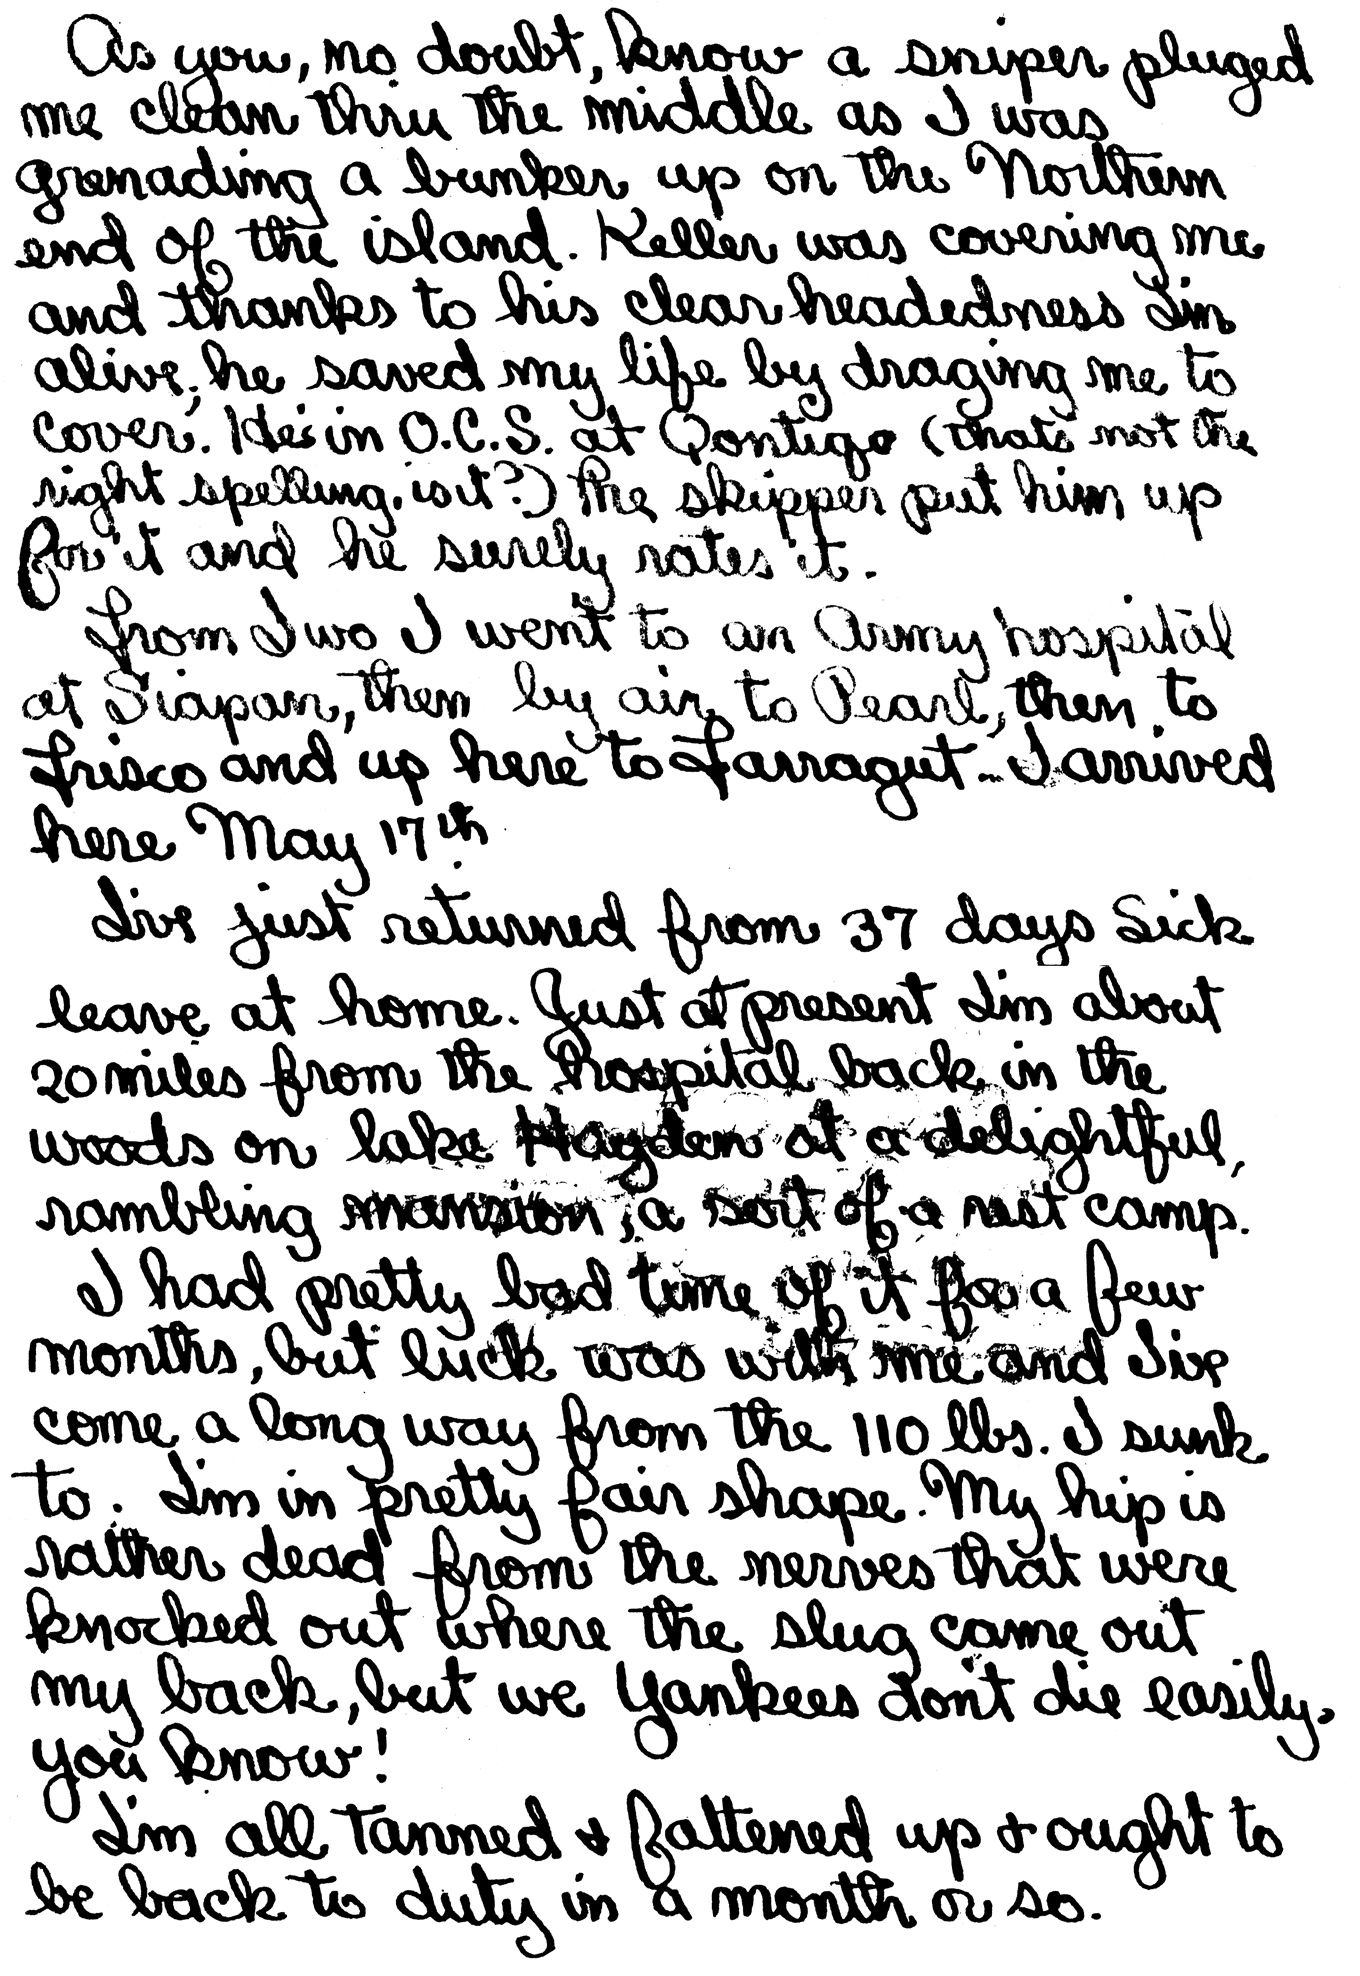 As you, no doubt, know a sniper pluged
me clean thru the middle as I was
grenading a bunker up on the Northern
end of the island. Keller was covering me
and thanks to his clear headedness I'm
alive; he saved my life by draging me to
cover. He's in O.C.S. at Qontiqo (that's not the
right spelling, is it?) The skipper put him up
for it and he surely rates it.
From Iwo I went to an Army hospital
at Siapan, then by air to Pearl, then to
Frisco and up here to Farragut - I arrived
here May 17th.
I've just returned from 37 days Sick
leave at home. Just at present I'm about
20 miles from the hospital back in the
woods on lake Hayden at a delightful,
rambling mansion, a sort of a rest camp.
I had pretty bad time of it for a few
months, but luck was with me and I've
come a long way from the 110 lbs. I sunk
to. I'm in pretty fair shape. My hip is
rather dead from the nerves that were
knocked out where the slug came out
my back, but we Yankees don't die easily,
you know!
I'm all tanned & fattened up & ought to
be back to duty in a month or so.